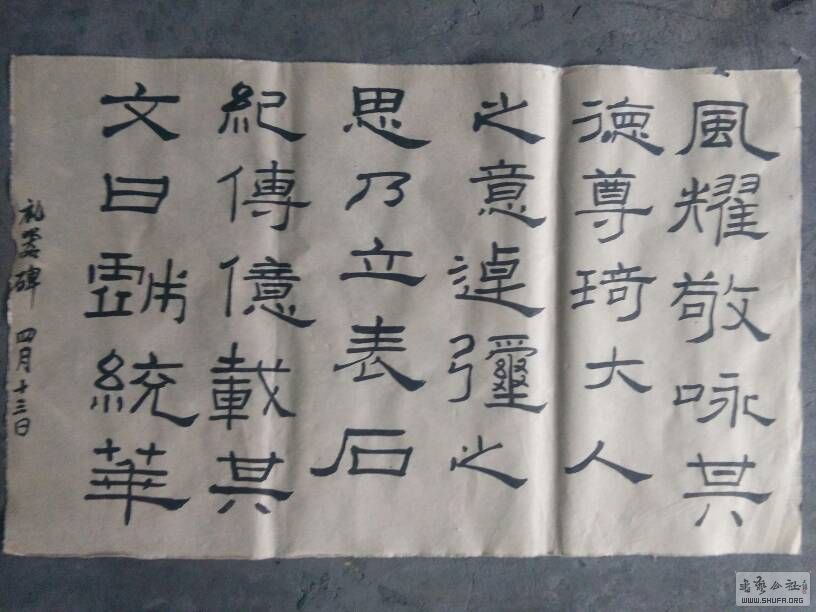 風耀敬咏其
德尊琦大人
之意逴彌之
思乃立表石
紀傳億載其
文曰戲統華
礼器碑 四月十三日
書藝公社
WWW.SHUFA.ORG